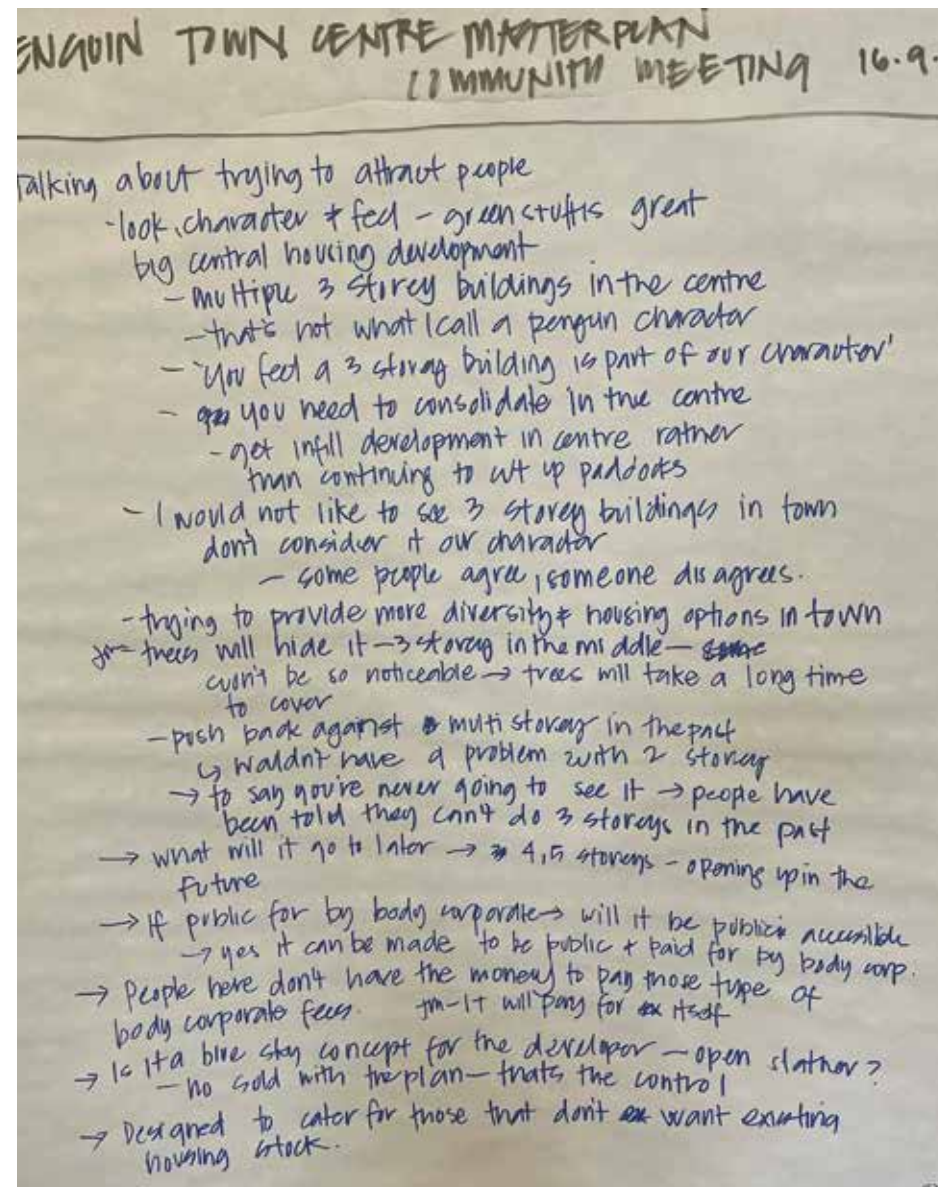 ENGUIN TOWN CENTRE MASTERPLAN
COMMUNITY MEETING 16.9.
Talking about trying to attract people
- look, character + feel - green stuff is great
big central housing development
- multiple 3 storey buildings in the centre
- that's not what I call a penguin character
- 'You feel a 3 storey building is part of our character'
- you need to consolidate in the centre
- get infill development in centre rather
than continuing to cut up paddocks
- I would not like to see 3 storey buildings in town
don't consider it our character
- some people agree, someone disagrees.
- trying to provide more diversity + housing options in town
jm - trees will hide it - 3 storey in the middle -
won't be so noticeable → trees will take a long time
to cover
- push back against multi storey in the past
↳ wouldn't have a problem with 2 storey
→ to say you're never going to see it → people have
been told they can't do 3 storeys in the past
→ what will it go to later → 4,5 storeys - opening up in the
future
→ If public for by body corporate → will it be public accessible
→ yes it can be made to be public + paid for by body corp.
→ People here don't have the money to pay those type of
body corporate fees. jm - It will pay for itself
→ Is it a blue sky concept for the developer - open slather?
- no sold with the plan - thats the control
→ Designed to cater for those that don't want existing
housing stock.